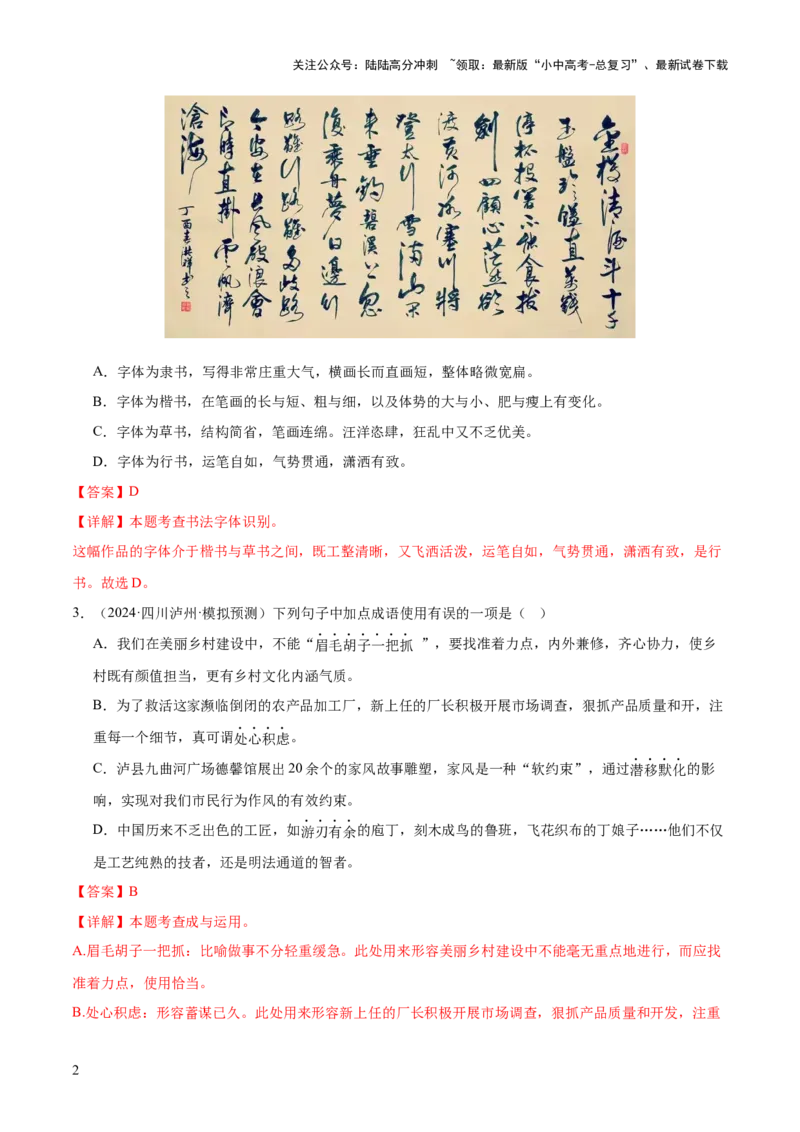 关注公众号：陆陆高分冲刺 ~领取：最新版“小中高考-总复习”、最新试卷下载
金樽清酒斗十千
玉盤珍饈直萬錢
停杯投箸不能食拔
劍四顾心茫然欲
渡黄河冰塞川将
登太行雪满山
来垂钓碧溪上忽
復乘舟夢日邊行
路難行路難多歧路
今安在長風破浪會
即時直掛雲帆濟
滄海
A．字体为隶书，写得非常庄重大气，横画长而直画短，整体略微宽扁。
B．字体为楷书，在笔画的长与短、粗与细，以及体势的大与小、肥与瘦上有变化。
C．字体为草书，结构简省，笔画连绵。汪洋恣肆，狂乱中又不乏优美。
D．字体为行书，运笔自如，气势贯通，潇洒有致。
【答案】D
【详解】本题考查书法字体识别。
这幅作品的字体介于楷书与草书之间，既工整清晰，又飞洒活泼，运笔自如，气势贯通，潇洒有致，是行
书。故选D。
3．（2024·四川泸州·模拟预测）下列句子中加点成语使用有误的一项是（ ）
A．我们在美丽乡村建设中，不能“眉毛胡子一把抓 ”，要找准着力点，内外兼修，齐心协力，使乡
村既有颜值担当，更有乡村文化内涵气质。
B．为了救活这家濒临倒闭的农产品加工厂，新上任的厂长积极开展市场调查，狠抓产品质量和开，注
重每一个细节，真可谓处心积虑。
C．泸县九曲河广场德馨馆展出20余个的家风故事雕塑，家风是一种“软约束”，通过潜移默化的影
响，实现对我们市民行为作风的有效约束。
D．中国历来不乏出色的工匠，如游刃有余的庖丁，刻木成鸟的鲁班，飞花织布的丁娘子……他们不仅
是工艺纯熟的技者，还是明法通道的智者。
【答案】B
【详解】本题考查成与运用。
A.眉毛胡子一把抓：比喻做事不分轻重缓急。此处用来形容美丽乡村建设中不能毫无重点地进行，而应找
准着力点，使用恰当。
B.处心积虑：形容蓄谋已久。此处用来形容新上任的厂长积极开展市场调查，狠抓产品质量和开发，注重
2